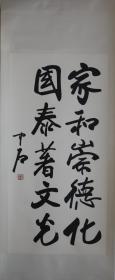 家和崇德化
國泰著文光
中石